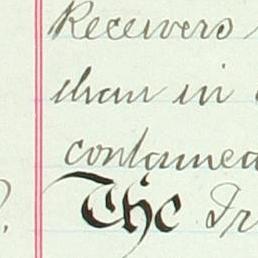 Receivers
than in
contained
The